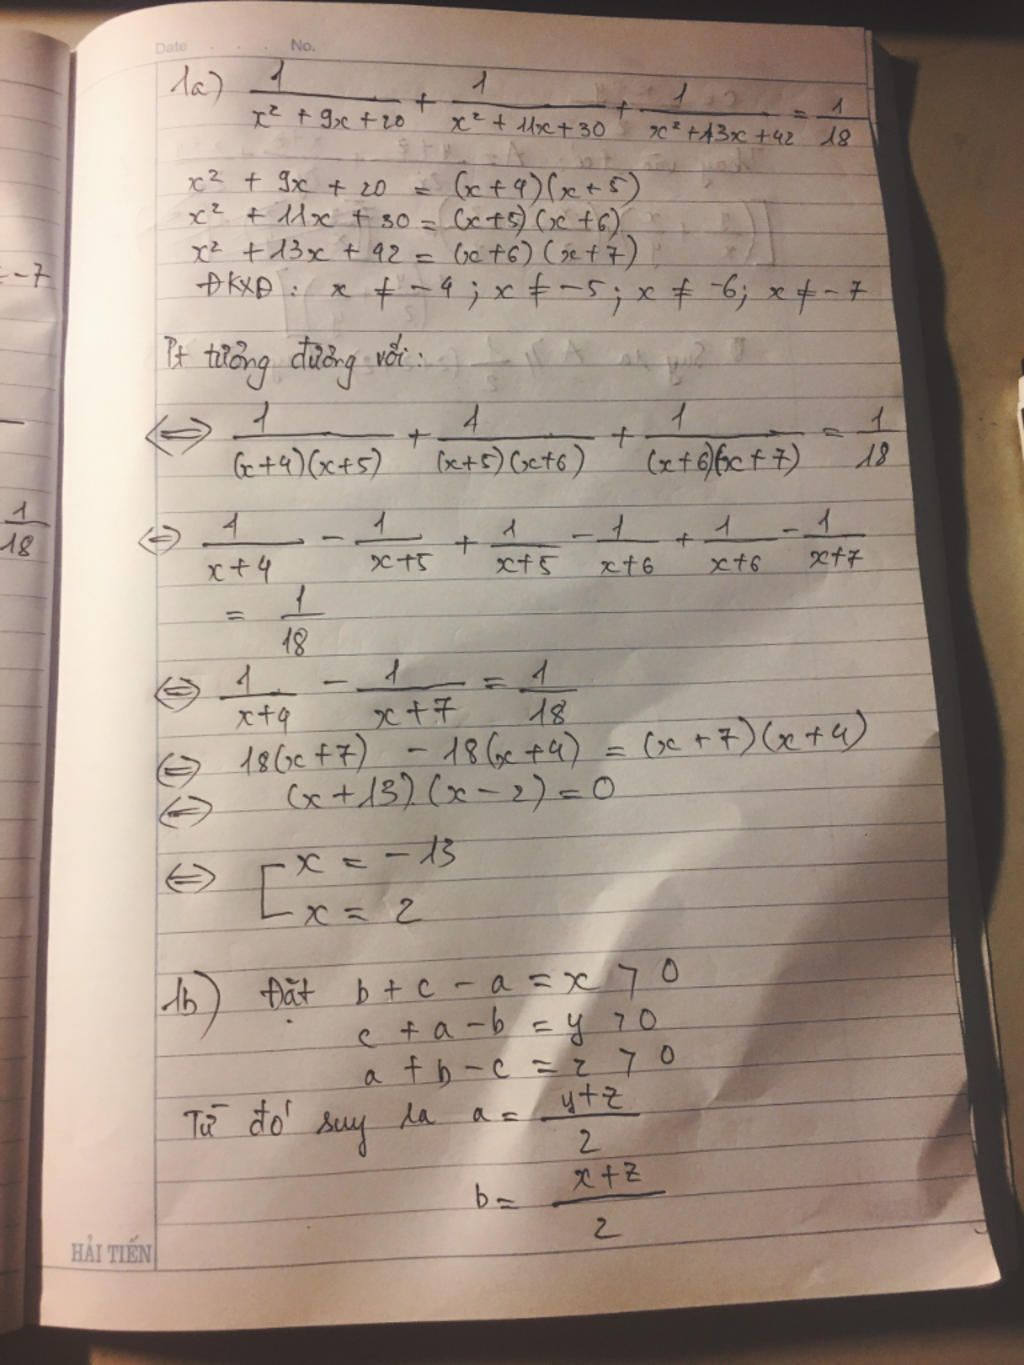 Date . . . No.
1a) 1/(x² + 9x + 20) + 1/(x² + 11x + 30) + 1/(x² + 13x + 42) = 1/18
x² + 9x + 20 = (x+4)(x+5)
x² + 11x + 30 = (x+5)(x+6)
x² + 13x + 42 = (x+6)(x+7)
ĐKXĐ : x ≠ -4 ; x ≠ -5 ; x ≠ -6; x ≠ -7
= -7
Pt tương đương với :
⇔ 1/((x+4)(x+5)) + 1/((x+5)(x+6)) + 1/((x+6)(x+7)) = 1/18
1/18
⇔ 1/(x+4) - 1/(x+5) + 1/(x+5) - 1/(x+6) + 1/(x+6) - 1/(x+7)
= 1/18
⇔ 1/(x+4) - 1/(x+7) = 1/18
⇔ 18(x+7) - 18(x+4) = (x+7)(x+4)
⇔ (x+13)(x-2) = 0
⇔ [ x = -13
x = 2
1b) Đặt b + c - a = x > 0
c + a - b = y > 0
a + b - c = z > 0
Từ đó suy ra a = (y+z)/2
b = (x+z)/2
HẢI TIẾN